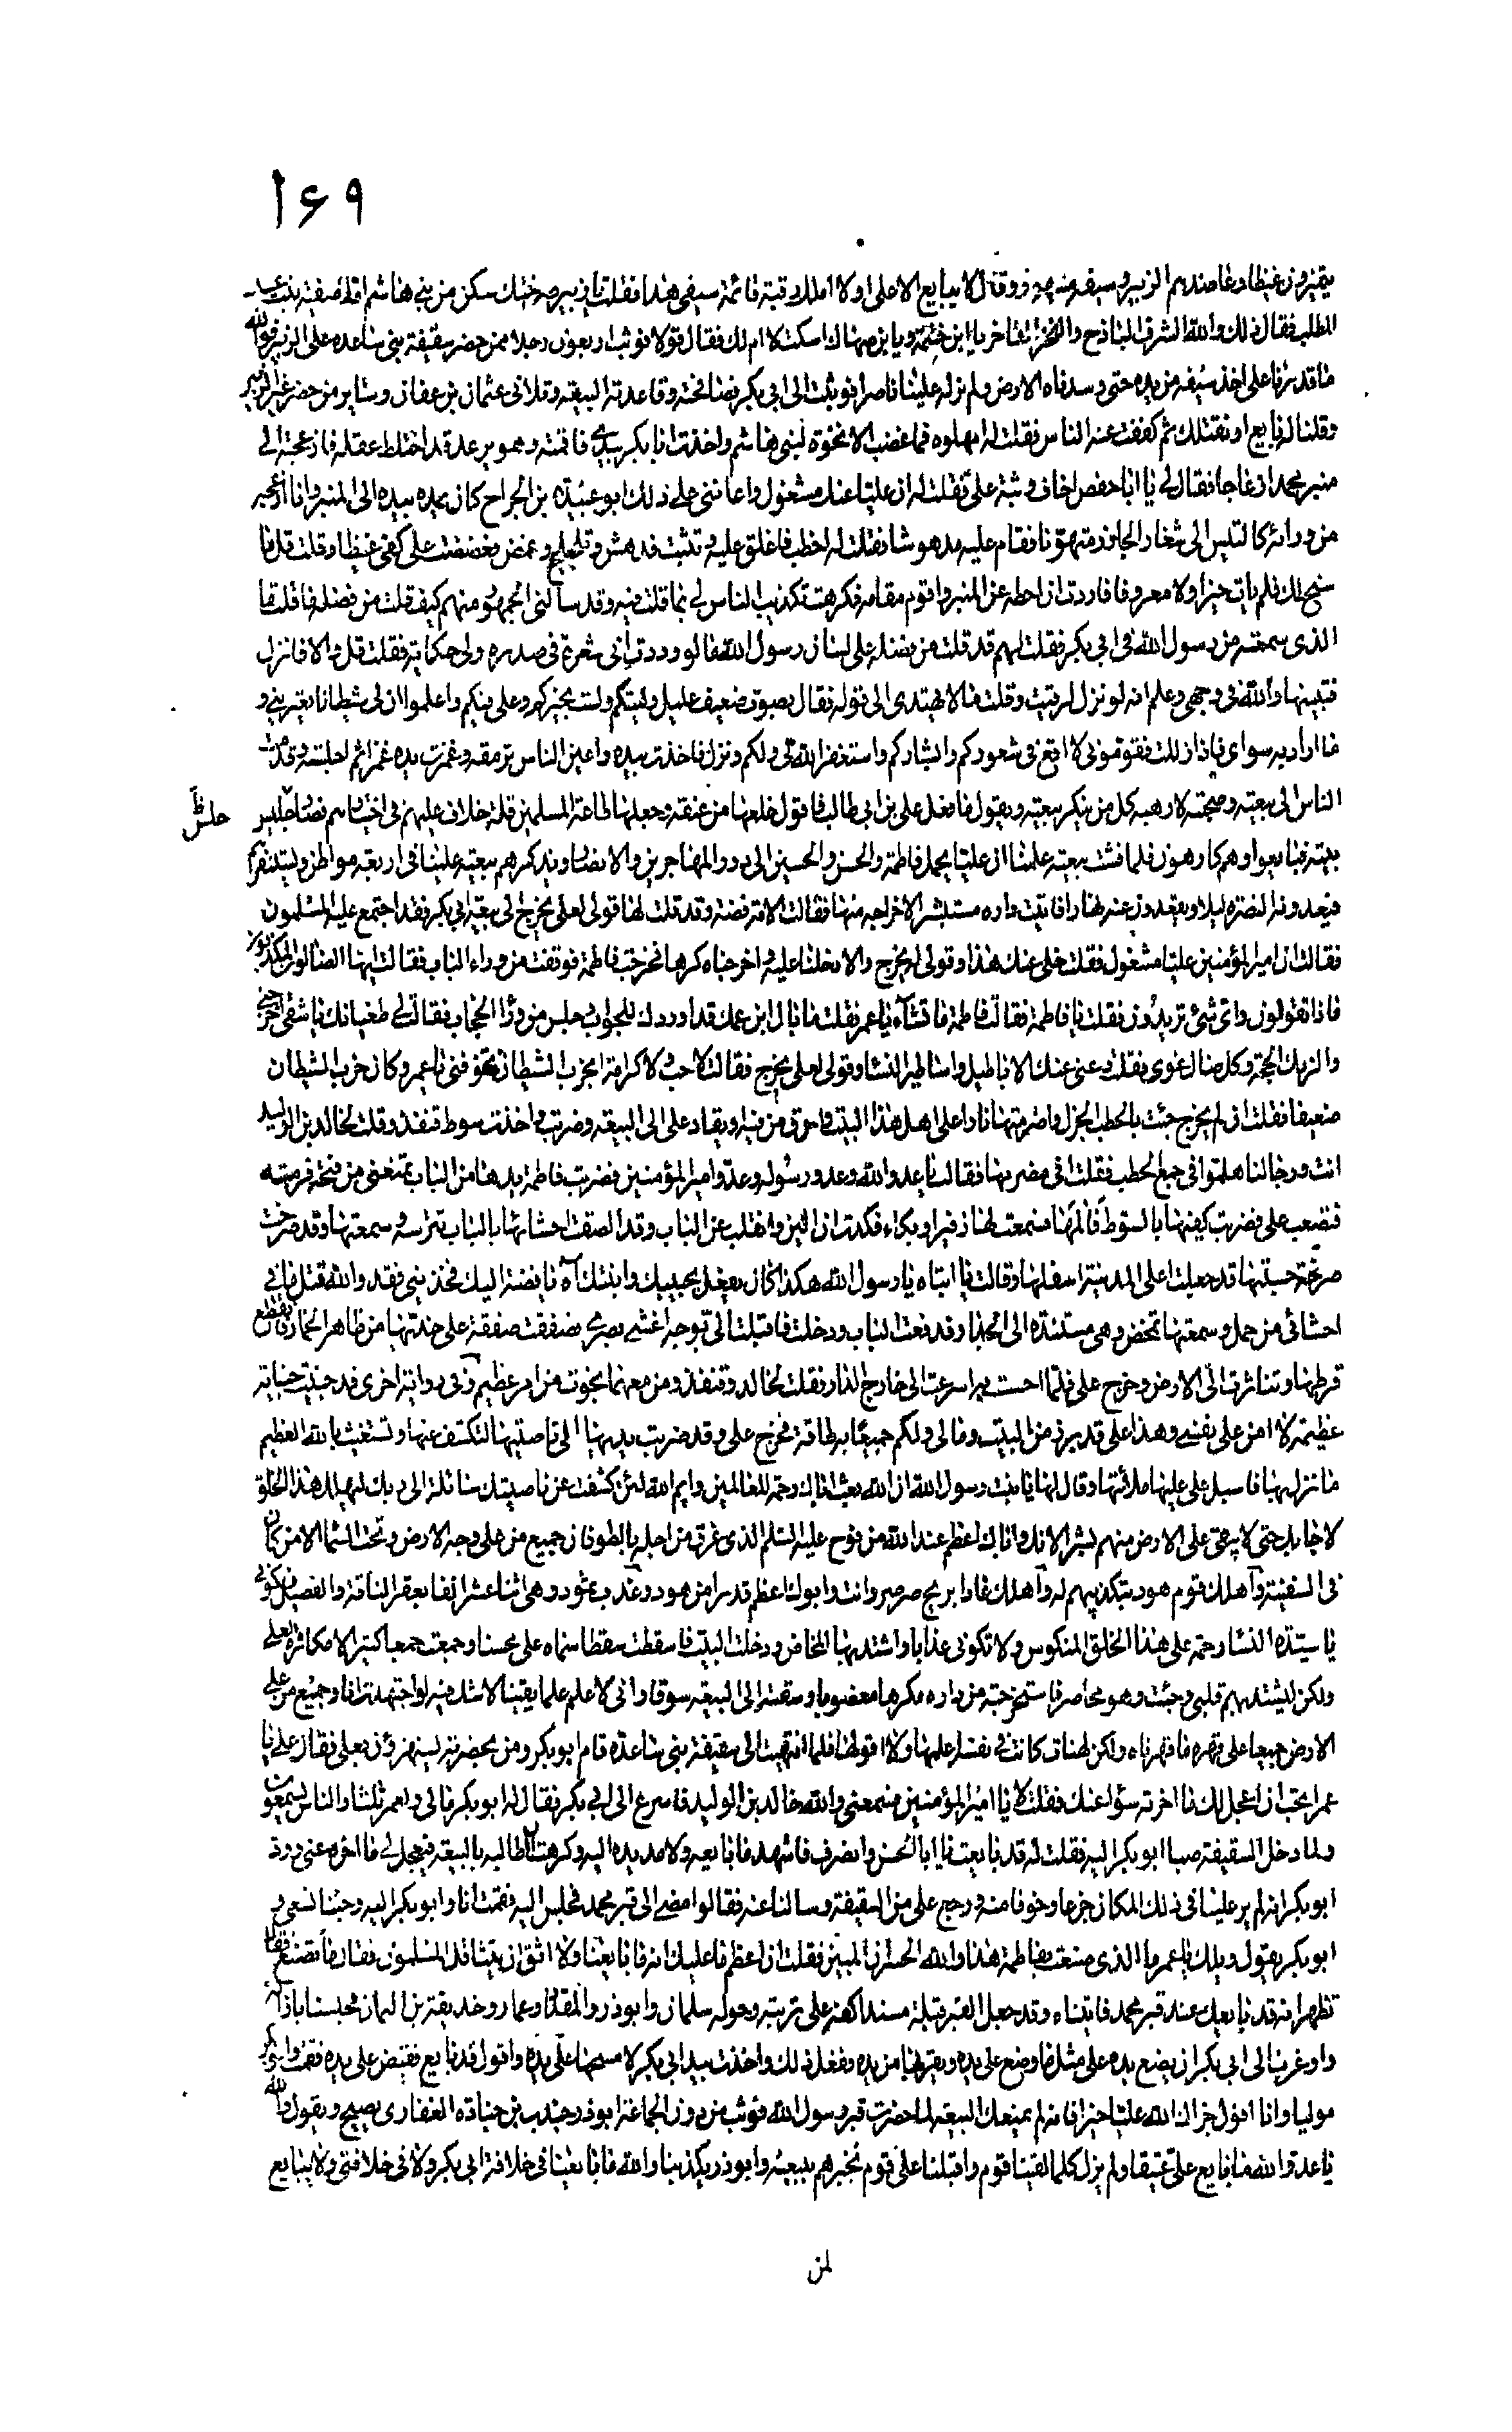 ۱۶۹
يتميزون غيظا وعاضدهم الزبير وسيفه مشهور وقال لا يبايع الا على او لا املك رقبة قائمة سيفى هذا فقلت يا زبير صرختك سكن من بني هاشم امك صفية بنت عبد
المطلب فقال ذلك والله الشرف الباذخ والفخر الفاخر يا ابن خثمة ويا ابن صهاك اسكت لا ام لك فقال قولا فوثب اربعون رجلا ممن حضر سقيفة بنى ساعدة على الزبير فوالله
ما قدرنا على اخذ سيفه من يده حتى وسدناه الارض ولم نر له علينا ناصرا فوثبت الى ابى بكر فصافحته وعاقدته البيعة وتلانى عثمان بن عفان وساير من حضر غير الزبير
وقلنا له بايع او نقتلك ثم كففت عنه الناس فقلت له امهلوه فما غضب الا نخوة لبنى هاشم واخذت ابا بكر بيدى فاقمته وهو يرعد قد اختلط عقله فازعجته الى
منبر محمد ازعاجا فقال لى يا ابا حفص اخاف وثبة على فقلت له ان عليا عنك مشغول واعاننى على ذلك ابو عبيدة بن الجراح كان يمده بيده الى المنبر وانا ازعجه
من ورائه كالتيس الى شفار الجازر متهونا فقام عليه مدهوشا فقلت له اخطب فاغلق عليه وتثبت فدهش وتلجلج وغمض فعضضت على كفى غيظا وقلت قل ما
سنح لك فلم يات خيرا ولا معروفا فاردت ان احطه عن المنبر واقوم مقامه فكرهت تكذيب الناس لى بما قلت فيه وقد سالنى الجمهور منهم كيف قلت من فضله ما قلت ما
الذى سمعته من رسول الله فى ابى بكر فقلت لهم قد قلت من فضله على لسان رسول الله ما لو وددت انى شعرة فى صدره ولى حكاية فقلت قل والا فانزل
فتبينها والله فى وجهى وعلم انه لو نزل لرقيت وقلت ما لا يهتدى الى قوله فقال بصوت ضعيف عليل وليتكم ولست بخيركم وعلى فيكم واعلموا ان لى شيطانا يعترينى و
ما اراد به سواى فاذا زللت فقومونى لا اقع فى شعوركم وابشاركم واستغفر الله لى ولكم ونزل فاخذت بيده واعين الناس ترمقه وغمزت يده غمزا ثم اجلسته وقدمت
الناس الى بيعته وصحبته لارهبه وكل من ينكر بيعته ويقول ما فعل على بن ابى طالب فاقول خلعها من عنقه وجعلها طاعة المسلمين قلة خلاف عليهم فى اختيارهم فصار جليس
بيته فبايعوا وهم كارهون فلما فشت بيعته علمنا ان عليا يحمل فاطمة والحسن والحسين الى دور المهاجرين والانصار ويذكرهم بيعته علينا فى اربعة مواطن ويستنفرهم
فيعدونه النصرة ليلا ويقعدون عنه نهارا فاتيت داره مستبشرا لاخراجه منها فقالت الامة فضة وقد قلت لها قولى لعلى يخرج الى بيعة ابى بكر فقد اجتمع عليه المسلمون
فقالت ان امير المؤمنين عليا مشغول فقلت خلى عنك هذا وقولى له يخرج والا دخلنا عليه واخرجناه كرها فخرجت فاطمة فوقفت من وراء الباب فقالت ايها الضالون المكذبون
ماذا تقولون واى شئ تريدون فقلت يا فاطمة فقالت فاطمة ما تشاء يا عمر فقلت ما بال ابن عمك قد اوردك للجواب وجلس من وراء الحجاب فقالت لى طغيانك يا شقى اخرجنى
والزمك الحجة وكل ضال غوى فقلت دعى عنك الاباطيل واساطير النساء وقولى لعلى يخرج فقالت لا حب ولا كرامة ابحزب الشيطان تخوفنى يا عمر وكان حزب الشيطان
ضعيفا فقلت ان لم يخرج جئت بالحطب الجزل واضرمتها نارا على اهل هذا البيت واحرق من فيه او يقاد على الى البيعة وضربت واخذت سوط قنفذ وقلت لخالد بن الوليد
انت ورجالنا هلموا فى جمع الحطب فقلت انى مضرمها فقالت يا عدو الله وعدو رسوله وعدو امير المؤمنين فضربت فاطمة يدها من الباب تمنعنى من فتحه فرمته
فتصعب على فضربت كفيها بالسوط فآلمها فسمعت لها زفيرا وبكاء فكدت ان الين وانقلب عن الباب وقد الصقت احشائها بالباب تترسه وسمعتها وقد صرخت
صرخة حسبتها قد جعلت اعلى المدينة اسفلها وقالت يا ابتاه يا رسول الله هكذا كان يفعل بحبيبتك وابنتك آه يا فضة اليك فخذينى فقد والله قتل ما فى
احشائى من حمل وسمعتها تمخض وهى مستندة الى الجدار فدفعت الباب ودخلت فاقبلت الى بوجه اغشى بصرى فصفقت صفقة على خديها من ظاهر الخمار فانقطع
قرطها وتناثرت الى الارض وخرج على فلما احسست به اسرعت الى خارج الدار وقلت لخالد وقنفذ ومن معهما نجوت من امر عظيم وفى رواية اخرى قد جنيت جناية
عظيمة لا امن على نفسى وهذا على قد برز من البيت وما لى ولكم جميعا به طاقة فخرج على وقد ضربت يديها الى ناصيتها لتكشف عنها وتستغيث بالله العظيم
ما نزل بها فاسبل على عليها ملائتها وقال لها يا بنت رسول الله ان الله بعث اباك رحمة للعالمين وايم الله لئن كشفت عن ناصيتك سائلة الى ربك ليهلك هذا الخلق
لاجابك حتى لا يبقى على الارض منهم بشرا لانك واباك اعظم عند الله من نوح عليه السلم الذى غرق من اجله بالطوفان جميع من على وجه الارض وتحت السماء الا من كان
فى السفينة واهلك قوم هود بتكذيبهم له واهلك عادا بريح صرصر وانت وابوك اعظم قدرا من هود وعذب ثمود وهى اثنا عشر الفا بعقر الناقة والفصيل فكونى
يا سيدة النساء رحمة على هذا الخلق المنكوس ولا تكونى عذابا واشتد بها المخاض ودخلت البيت فاسقطت سقطا سماه على محسنا وجمعت جمعا كثيرا لا مكاثرة لعلى
ولكن ليشتد بهم قلبى وجئت وهو محاصر فاستخرجته من داره مكرها مغصوبا وسقته الى البيعة سوقا وانى لاعلم علما يقينا لا شك فيه لو اجتهدت انا وجميع من على
الارض جميعا على قهره ما قهرناه ولكن لهنات كانت فى نفسه اعلمها ولا اقولها فلما انتهيت الى سقيفة بنى ساعدة قام ابو بكر ومن بحضرته يستهزؤن بعلى فقال على يا
عمر اتحب ان اعجل لك ما اخرته سوء عنك فقلت لا يا امير المؤمنين فسمعنى والله خالد بن الوليد فاسرع الى ابى بكر فقال له ابو بكر ما لى ولعمر ثلثا والناس يسمعون
ولما دخل السقيفة صبا ابو بكر اليه فقلت له قد بايعت يا ابا الحسن وانصرف فاشهد ما بايعه ولا مد يده اليه وكرهت ان اطالبه بالبيعة فيعجل لى ما اخره عنى وود
ابو بكر انه لم ير عليا فى ذلك المكان جزعا وخوفا منه ورجع على من السقيفة وسالنا عنه فقالوا مضى الى قبر محمد فجلس اليه فقمت انا وابو بكر اليه وجئنا نسعى و
ابو بكر يقول ويلك يا عمر ما الذى صنعت بفاطمة هذا والله الخسران المبين فقلت ان اعظم ما عليك انه ما بايعنا ولا اثق ان يتثاقل المسلمون فقال فما تصنع فقلت
تظهر انه قد بايعك عند قبر محمد فاتيناه وقد جعل القبر قبلة مسندا كفه على تربته وحوله سلمان وابو ذر والمقداد وعمار وحذيفة بن اليمان فجلسنا بازائه
واوعزت الى ابى بكر ان يضع يده على مثل ما وضع على يده ويقربها من يده ففعل ذلك واخذت بيد ابى بكر لامسحها على يده واقول قد بايع فقبض على يده فقمت وابو بكر
موليا وانا اقول جزا الله عليا خيرا فانه لم يمنعك البيعة لما حضرت قبر رسول الله فوثب من دون الجماعة ابو ذر جندب بن جنادة الغفارى يصيح ويقول والله
يا عدو الله ما بايع على عتيقا ولم يزل كلما لقينا قوم واقبلنا على قوم نخبرهم ببيعته وابو ذر يكذبنا والله ما بايعنا فى خلافة ابى بكر ولا فى خلافتى ولا يبايع
لمن